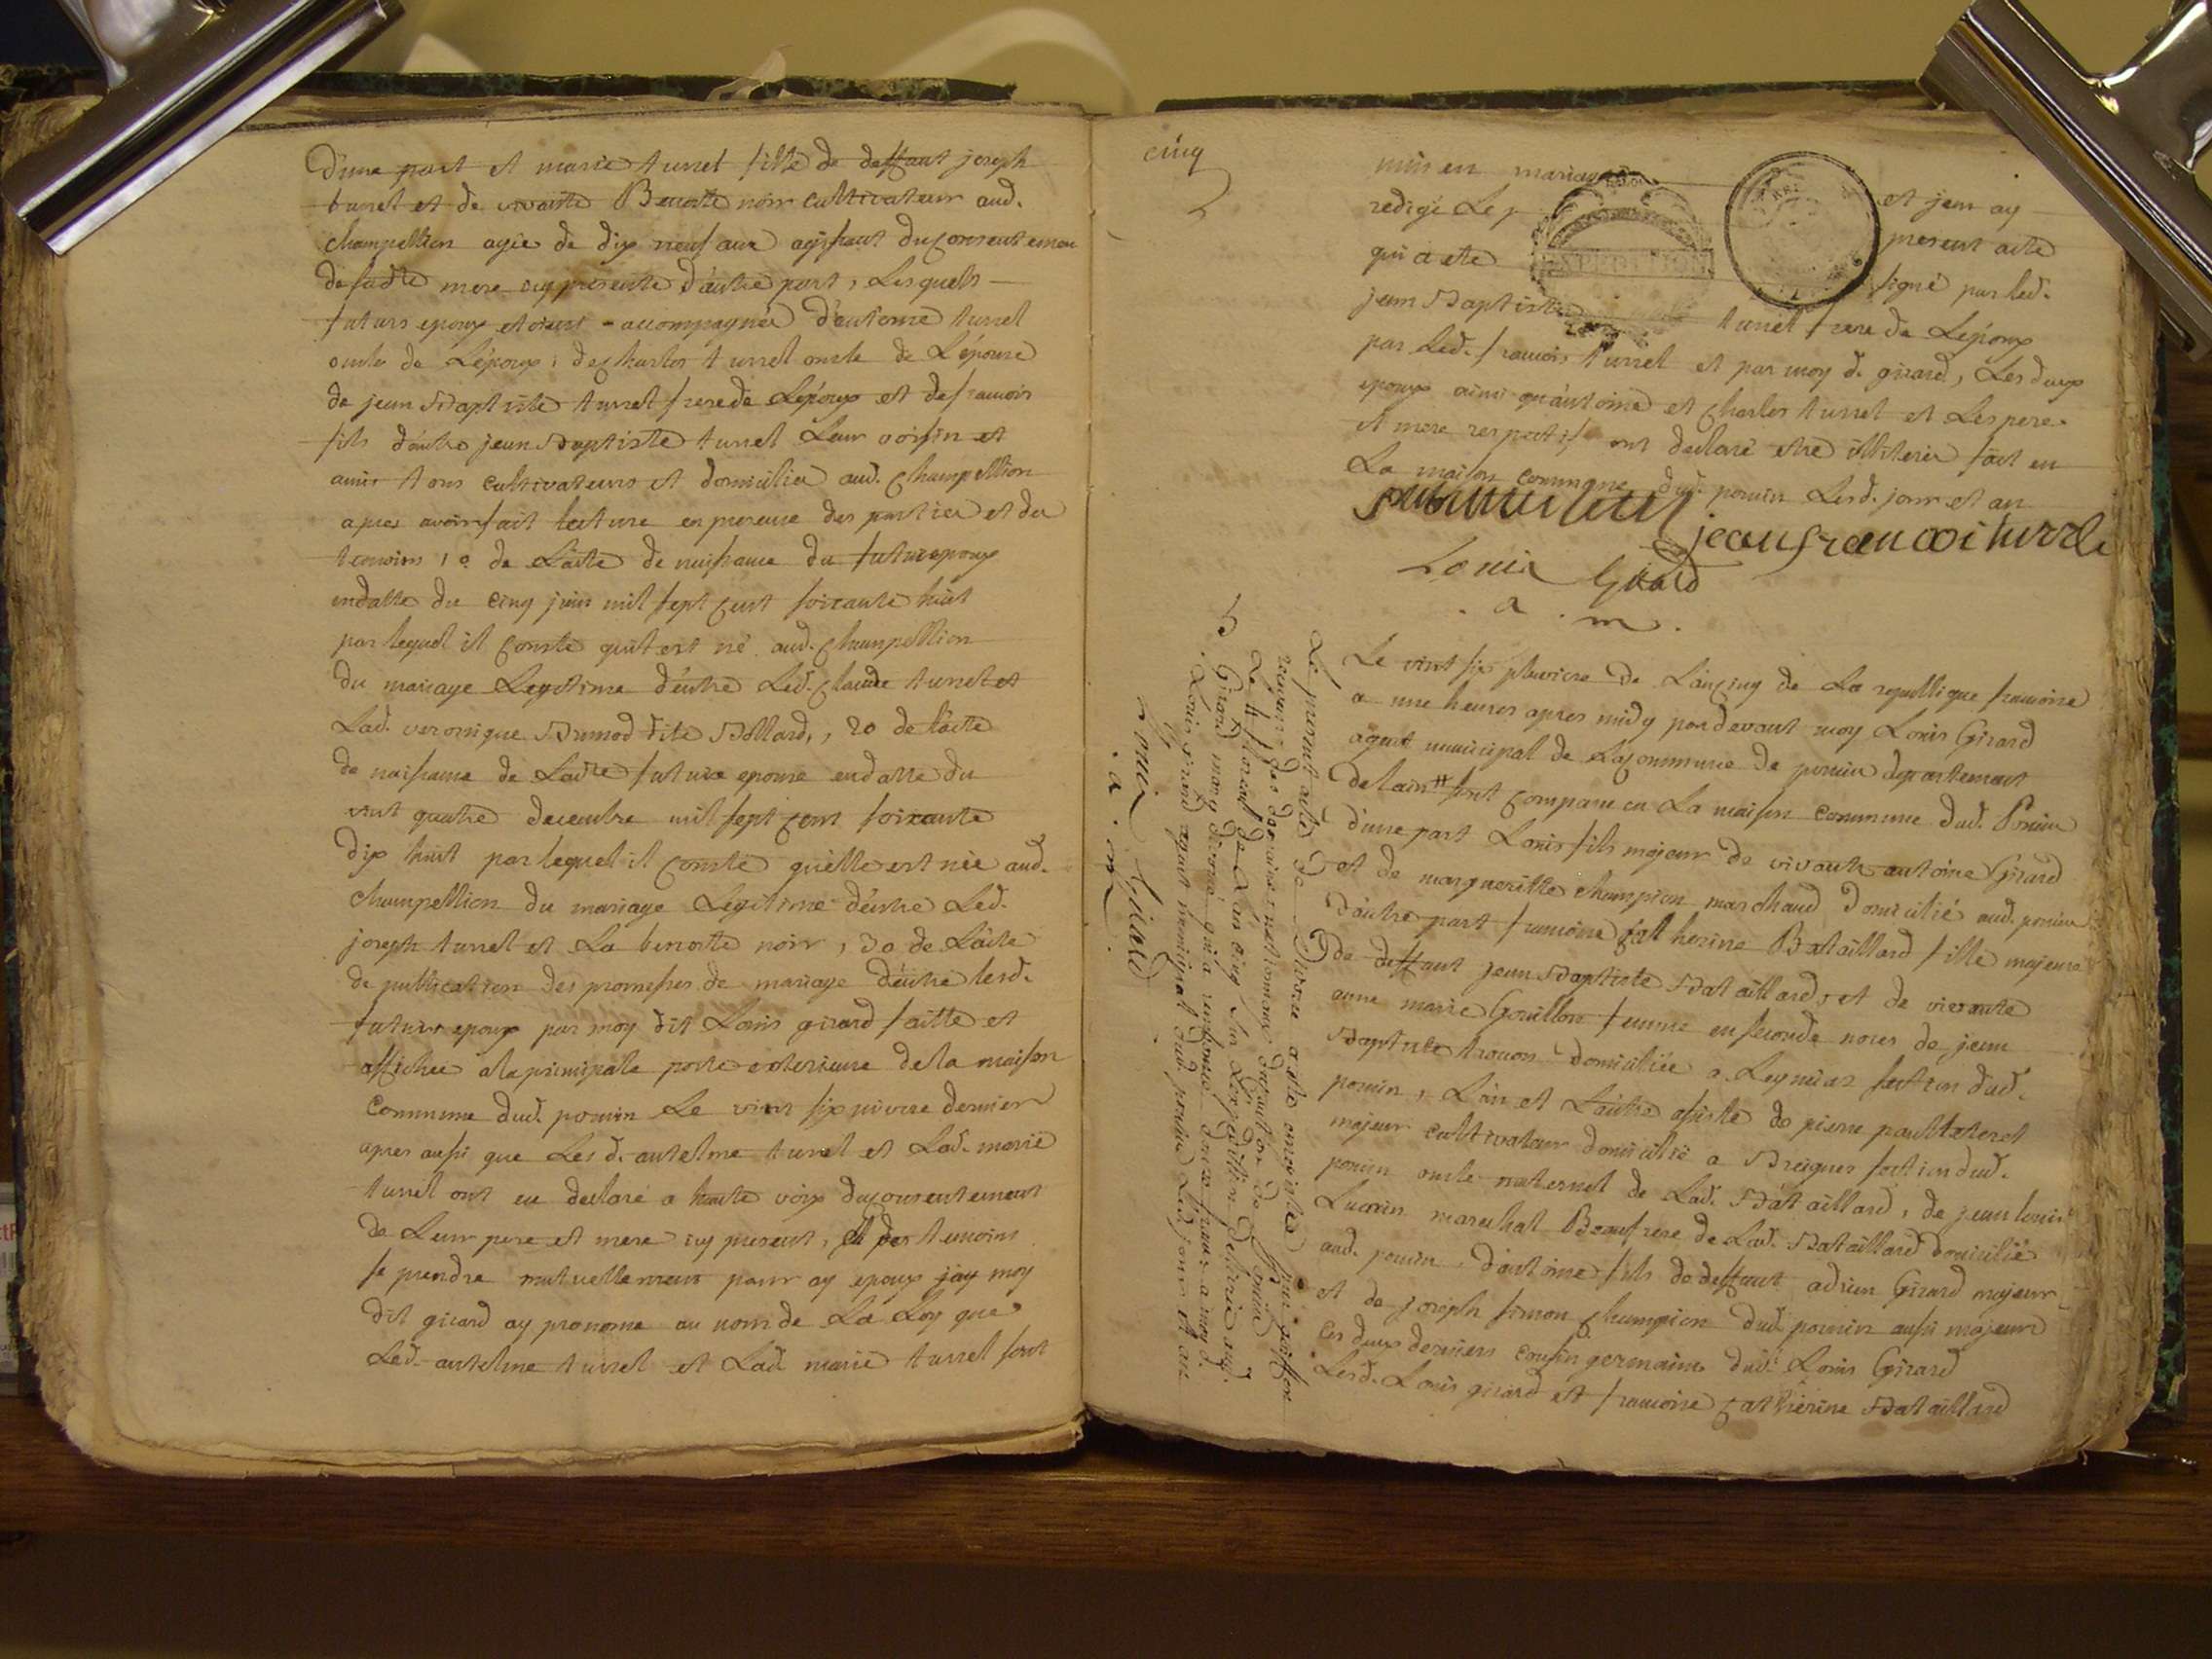 D'une part et marie turrel fille de deffunt joseph
turrel et de vivante Benoite noir cultivateur aud.
champellion agée de dix neuf ans agissant du consentemen
de sadte mere icy presente d'autre part, Lesquels
futurs epoux etoient accompagnés d'antoine turrel
oncle de L'époux, de charles turrel oncle de L'épouse
de jean Baptiste turrel frere de L'époux et de francois
fils d'autre jean Baptiste turrel Leur voisin et
amis tous cultivateurs et domiciliés aud. champellion
apres avoir fait lecture en presence des parties et des
temoins 1o de L'acte de naissance du futur epoux
en datte du cinq juin mil sept cent soixante huit
par lequel il conste qu'il est né aud. champellion
du mariage Legitime d'entre Led. claude turrel et
Lad. veronique Brunod dite Bollard, 2o de l'acte
de naissance de Ladte future epouse en datte du
vint quatre decembre mil sept cent soixante
dix huit par lequel il conste qu'elle est née aud.
champellion du mariage Legitime d'entre Led.
joseph turrel et La benoite noir, 3o de L'acte
de publication des promesses de mariage d'entre lesd.
futurs epoux par moy dit Louis girard faitte et
affichée a la principale porte exterieure de la maison
commune dud. poncin Le vint six nivose dernier
apres aussi que Led. antelme turrel et Lad. marie
turrel ont eu declaré a haute voix du consentement
de Leur pere et mere icy present, et des temoins
se prendre mutuellement pour epoux jay moy
dit girard ay prononcé au nom de La Loy que
Led. antelme turrel et Lad. marie turrel sont
cinq
5
unis en mariage et jen ay
redigé Le p present acte
qui a ete signé par led.
jean Baptiste turrel frere de L'epoux
par Led. francois turrel et par moy d. girard, Les deux
epoux ainsi qu'antoine et charles turrel et Les pere
et mere respectifs ont declaré etre illiterés fait en
La maison commune dud. poncin Lesd. jour et an
jean francoi turrle
Louis Girard
a . m .
Le vint six pluviose de L'an cinq de La republique francoise
a une heures apres midy pardevant moy Louis Girard
agent municipal de La commune de poncin departement
de Lain # sont comparu en La maison commune dud. Poncin
d'une part Louis fils majeur de vivants antoine Girard
et de marguerite champion marchand domicilié aud. poncin
d'autre part francoise catherine Bataillard fille majeure
de deffunt jean Baptiste Bataillard, et de vivante
anne marie Gouillon femme en seconde noces de jean
Baptiste domiciliée a Leymiat section dud.
poncin, L'un et L'autre assisté de pierre paul
majeur cultivateur domicilié a Breignes section dud.
poncin oncle maternel de Lad. Bataillard, de jean louis
marechal Beaufrere de Lad. Bataillard domicilié
aud. poncin, d'antoine fils de deffunt adrien Girard majeur
et de joseph simon champion dud. poncin aussi majeur
ces deux derniers cousin germains dud. Louis Girard
Lesd. Louis girard et francoise catherine Bataillard
Le present acte de Divorce a ete enregistré
receveur des domaines nationaux
Le 4 floreal de L'an cinq sur L'expedition delivrée aud.
Girard
Louis girard agent municipal dud. poncin Led. jour et an
Louis Girard
. a . m .